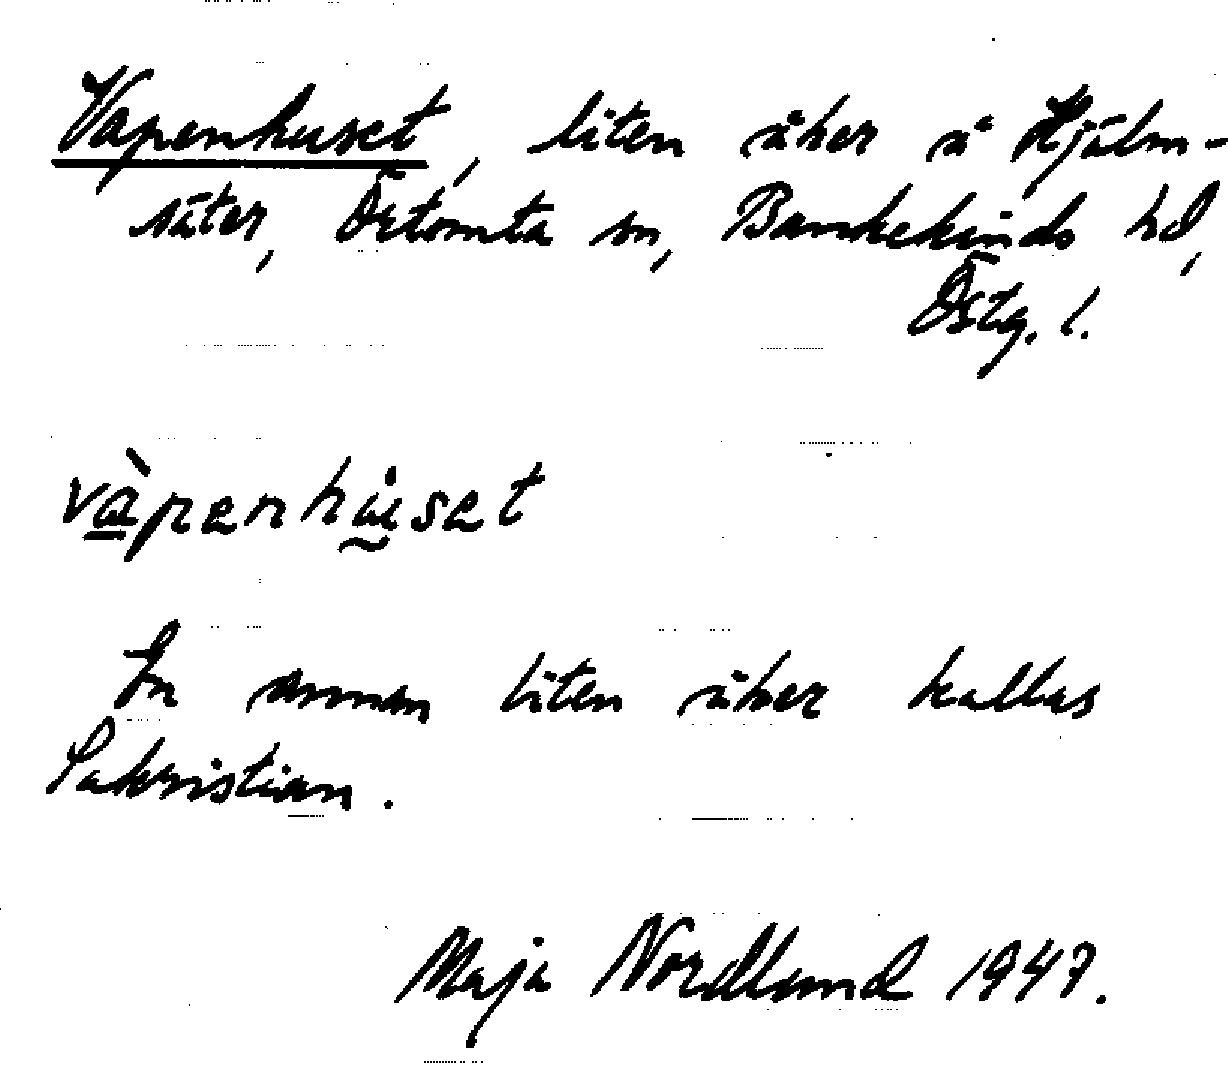 Vapenhuset, liten åker å Hjälm-
säter, Örtomta sn, Bankekinds hd,
Östg. l.
vàpenhuset
En annan liten åker kallas
Sakristian.
Maja Nordlund 1947.